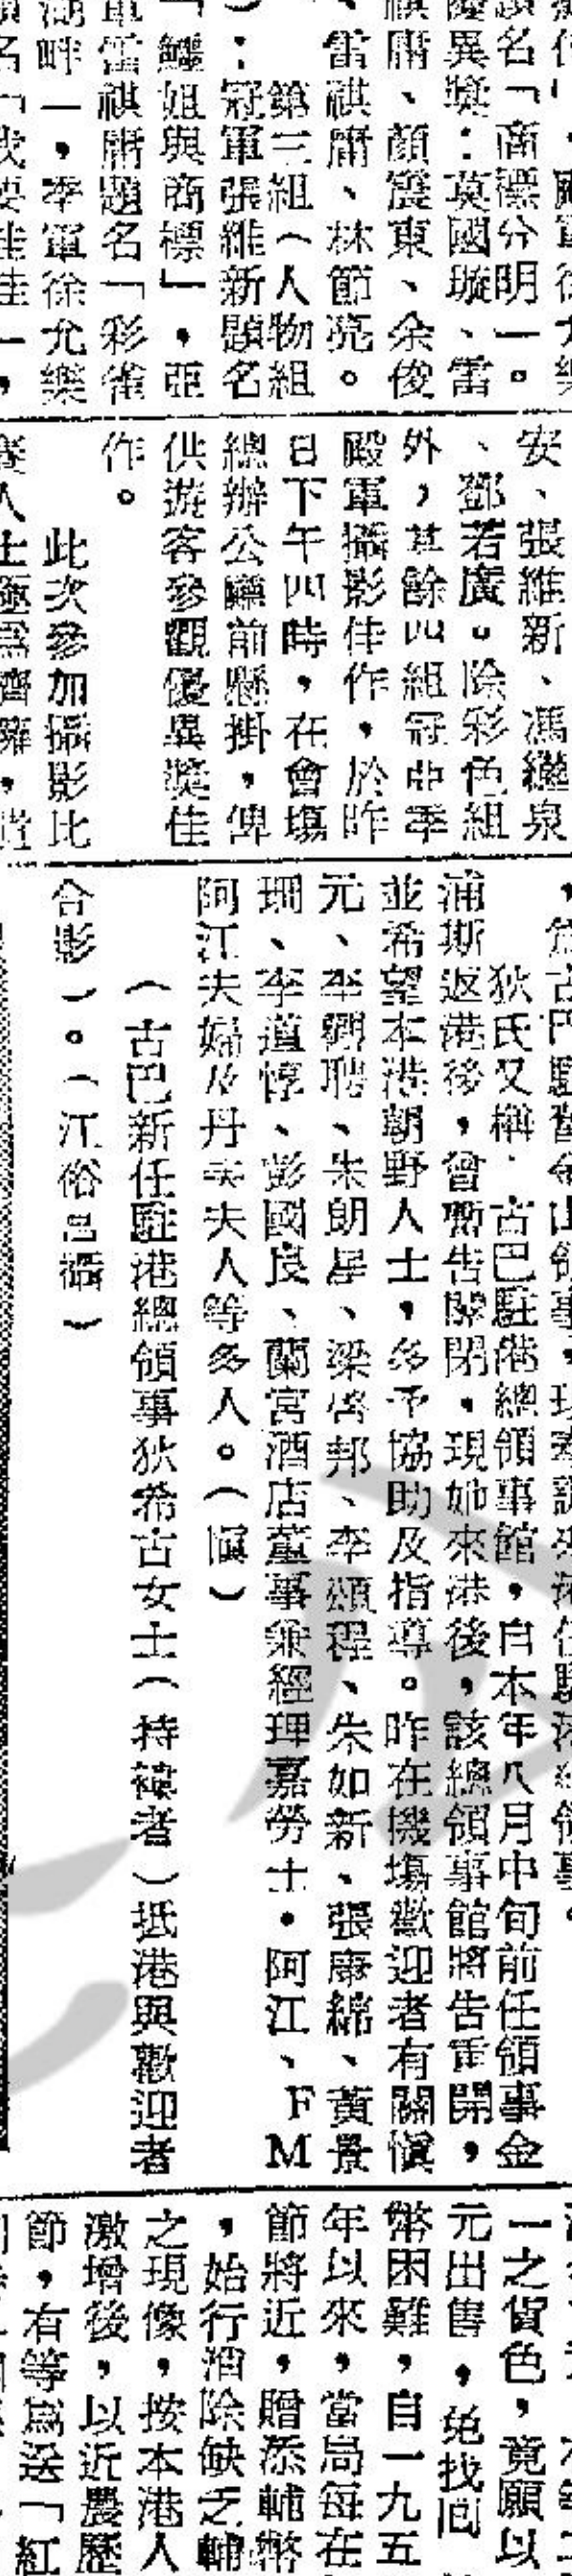 題名「商標分明」。
優異獎：莫國璇、雷
祺庸、顏震東、余俊
、雷祺庸、林節亮。
第三組（人物組
）：冠軍張維新題名
「鱷姐與商標」，亞
軍雷祺庸題名「彩雀
湖畔」，季軍徐允樂
安、張維新、馮繼泉
、鄧若廣。除彩色組
外，其餘四組冠亞季
殿軍攝影佳作，於昨
日下午四時，在會塲
總辦公廳前懸掛，俾
供遊客參觀優異獎佳
作。
此次參加攝影比
狄氏又稱：古巴駐港總領事館，自本年八月中旬前任領事金
浦斯返港後，曾暫告關閉，現她來港後，該總領事館將告重開，
並希望本港朝野人士，多予協助及指導。昨在機塲歡迎者有關愼
元、李劉聘、朱朗星、梁啓邦、李頌程、朱如新、張康綿、黃景
璵、李道惇、彭國良、蘭宮酒店董事兼經理嘉勞士·阿江、FM
阿江夫婦及丹夫人等多人。（愼）
（古巴新任駐港總領事狄希古女士（持褸者）抵港與歡迎者
合影）。（江俗呂攝）
一之貨色，竟願以
元出售，免找回
幣困難，自一九五
年以來，當局每在
節將近，贈添輔幣
，始行消除缺乏輔
之現像，按本港人
激增後，以近農歷
節，有等爲送「紅